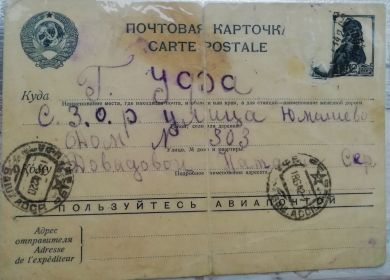 ПОЧТОВАЯ КАРТОЧКА
CARTE POSTALE
Куда
Г. Уфа
Наименование места, где находится почта, и области или края, а для станции—наименование железной дороги
С. З. О. Р улица Юмашево
Дом № 303
Улица, № дома и квартиры
Кому
Подробное наименование адресата
ПОЛЬЗУЙТЕСЬ АВИАПОЧТОЙ
Адрес
отправителя
Adresse de
l'expéditeur